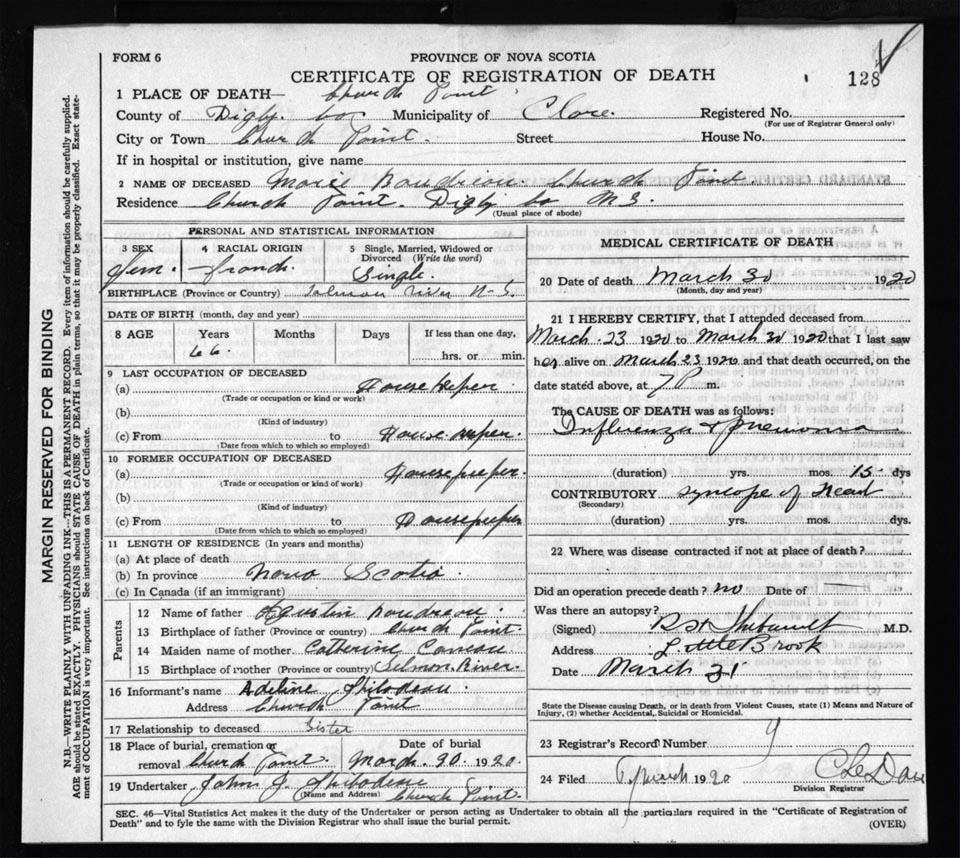 FORM 6
PROVINCE OF NOVA SCOTIA
CERTIFICATE OF REGISTRATION OF DEATH
128
1 PLACE OF DEATH— Church Point
County of Digby Co Municipality of Clare. Registered No.
(For use of Registrar General only)
City or Town Church Point. Street House No.
If in hospital or institution, give name
2 NAME OF DECEASED Marie Boudreau. Church Point.
Residence Church Point. Digby Co N S.
(Usual place of abode)
PERSONAL AND STATISTICAL INFORMATION
3 SEX 4 RACIAL ORIGIN 5 Single, Married, Widowed or Divorced (Write the word)
Fem. French. Single.
BIRTHPLACE (Province or Country) Salmon River N-S.
DATE OF BIRTH (month, day and year)
8 AGE Years Months Days If less than one day,
66. hrs. or min.
9 LAST OCCUPATION OF DECEASED
(a) House keeper.
(Trade or occupation or kind or work)
(b)
(Kind of industry)
(c) From to House keeper.
(Date from which to which so employed)
10 FORMER OCCUPATION OF DECEASED
(a) Housekeeper.
(Trade or occupation or kind of work)
(b)
(Kind of industry)
(c) From to Housekeeper
(Date from which to which so employed)
11 LENGTH OF RESIDENCE (In years and months)
(a) At place of death
(b) In province Nova Scotia.
(c) In Canada (if an immigrant)
Parents
12 Name of father Boudreau.
13 Birthplace of father (Province or country) Church Point.
14 Maiden name of mother Catherine Comeau
15 Birthplace of mother (Province or country) Salmon River.
16 Informant's name Adeline Thibodeau.
Address Church Point
17 Relationship to deceased Sister
18 Place of burial, cremation or removal Church Point. Date of burial March. 1920.
19 Undertaker John J. Thibodeau
(Name and Address) Church Point.
MEDICAL CERTIFICATE OF DEATH
20 Date of death March 30 1920
(Month, day and year)
21 I HEREBY CERTIFY, that I attended deceased from
March. 23 1920 to March 30 1920 that I last saw
her alive on March 23 1920 and that death occurred, on the
date stated above, at 7 P m.
The CAUSE OF DEATH was as follows:
Influenza & pneumonia
(duration) yrs. mos. 15 dys
CONTRIBUTORY syncope of Heart
(Secondary)
(duration) yrs. mos. dys.
22 Where was disease contracted if not at place of death?
Did an operation precede death? no Date of —
Was there an autopsy?
(Signed) Thibault M.D.
Address Little Brook
Date March 31
State the Disease causing Death, or in death from Violent Causes, state (1) Means and Nature of
Injury, (2) whether Accidental, Suicidal or Homicidal.
23 Registrar's Record Number 9
24 Filed March 1920
Division Registrar
SEC. 46—Vital Statistics Act makes it the duty of the Undertaker or person acting as Undertaker to obtain all the particulars required in the "Certificate of Registration of
Death" and to fyle the same with the Division Registrar who shall issue the burial permit.
(OVER)
MARGIN RESERVED FOR BINDING
N.B.—WRITE PLAINLY WITH UNFADING INK—THIS IS A PERMANENT RECORD. Every item of information should be carefully supplied.
AGE should be stated EXACTLY. PHYSICIANS should STATE CAUSE OF DEATH in plain terms, so that it may be properly classified. Exact state-
ment of OCCUPATION is very important. See instructions on back of Certificate.